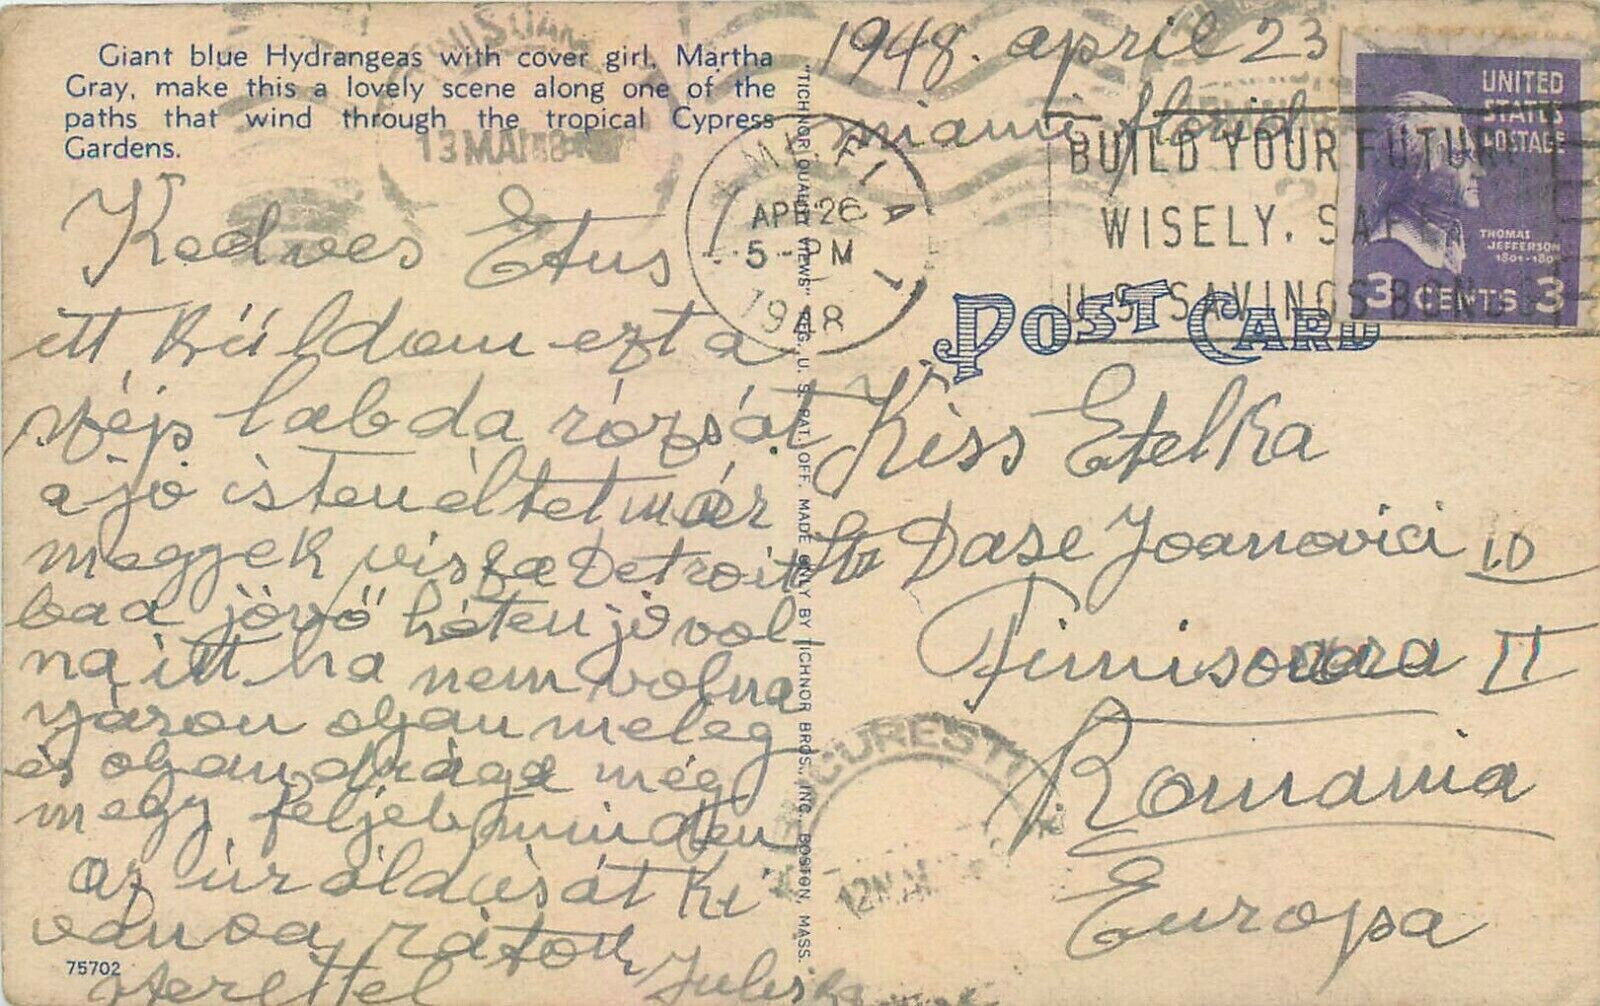 Giant blue Hydrangeas with cover girl, Martha
Gray, make this a lovely scene along one of the
paths that wind through the tropical Cypress
Gardens.
Kedves Etus
itt küldom ezt a
széjp labda rózsát
a jó isten éltet már
megyek visza Detroit
baa jövő héten jó vol
na itt ha nem volna
yáron oljan meleg
és oljan drága még
megy feljeb minden
az úr áldását ki
vánva rátok
szerettel Juliska
75702
"TICHNOR QUALITY VIEWS" REG. U. S. PAT. OFF. MADE ONLY BY TICHNOR BROS., INC., BOSTON, MASS.
1948. april 23
miami florid
MIAMI, FLA
APR 26
5 - PM
1948
BUILD YOUR FUTURE
WISELY, SAFELY
U.S. SAVINGS BONDS
UNITED
STATES
POSTAGE
THOMAS
JEFFERSON
3 CENTS 3
POST CARD
Kiss Etelka
Str Dase Joanovici 10
Timisoara II
Romania
Europa
BUCURESTI
13 MAI 48